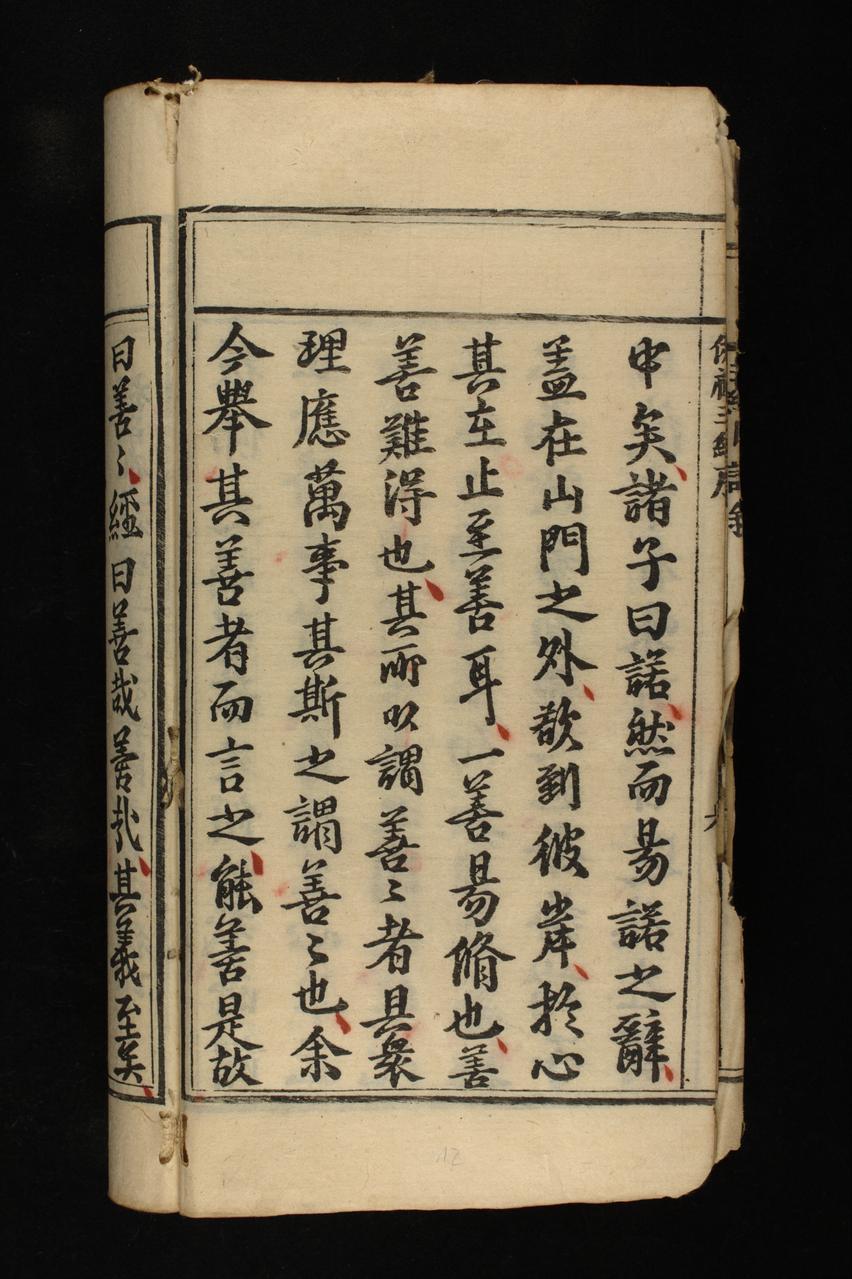 申矣諸子曰諾然而易諾之辭
盖在山門之外欲到彼岸於心
其在止至善耳一善易脩也善
善難得也其所以謂善〻者具衆
理應萬事其斯之謂善〻也余
今舉其善者而言之能善是故
曰善〻經曰善哉善哉其義至矣